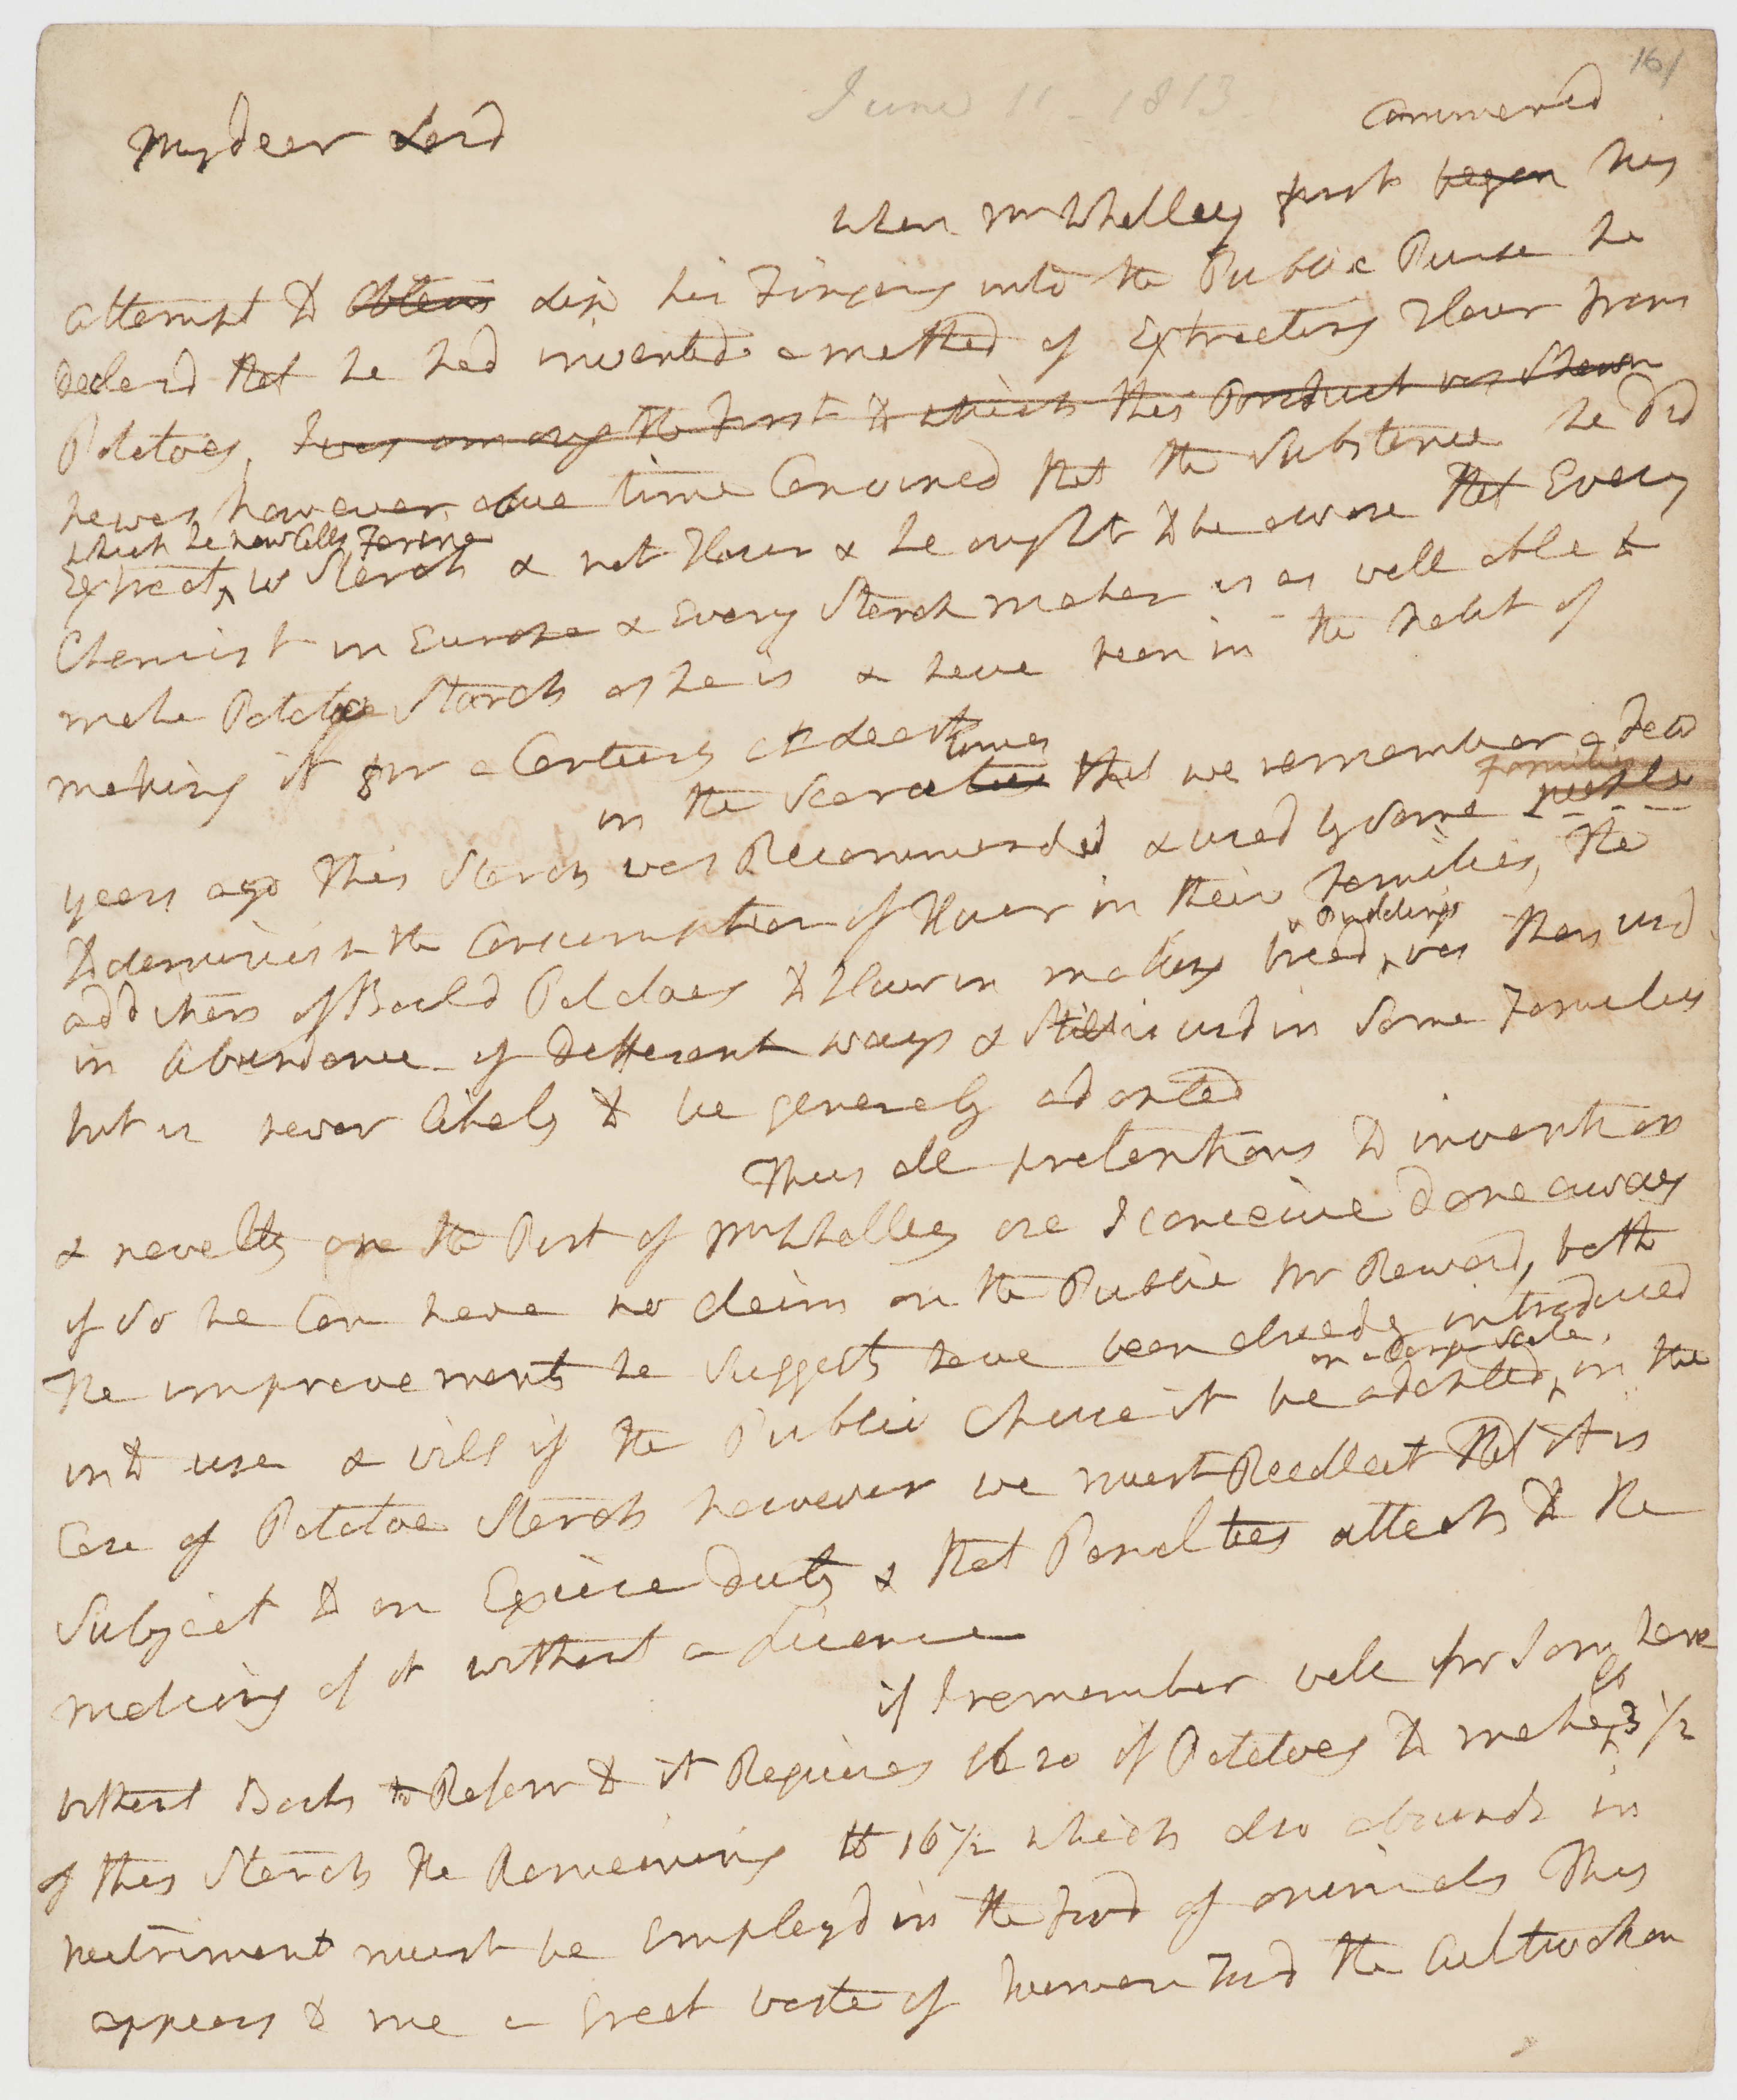 161
June 11 - 1813
My dear Lord
Commencd
when Mr Whalley first began his
attempt to obtain dip his Fingers into the Public Purse he
declard that he had invented a method of Extracting Flour from
Potatoes, I was among the first to which this Product was Shewn
he was however in due time Convincd that the Substance he did
which he now Calls Farina
Extract, is Starch & not Flour & he ought to be aware that Every
Chemist in Europe & Every Starch maker is as well able to
make Potatoe Starch as he is & have been in the habit of
making it for a Century at least
times
in the Scarcities that we remember a Few
Families
years ago this Starch was Recommended & used by some people
to diminish the Consumption of Flour in their Families, the
& Puddings
addition of Boild Potatoes to Flour in making bread, was then usd
in abundance of different ways & Still is usd in Some Families
but is never likely to be generaly adopted
Thus all pretentions to invention
& novelty on the Part of Mr Whalley are I conceive done away
if So he Can have no claim on the Public for Reward, both
the improvements he Suggests have been already introduced
on a Large Scale
into use & will if the Public Chuse it be adopted, in the
Case of Potatoe Starch however we must Recollect that it is
Subject to an Excise duty & that Penalties attach to the
making of it without a Licence
if I remember well for I am here
lb
without Books to Refer to it Requires lb 20 of Potatoes to make 3 1/2
of this Starch the Remaining lb 16 1/2 which also abounds in
nutriment must be employd in the food of animals This
appears to me a Great waste of human Food the Cultivation